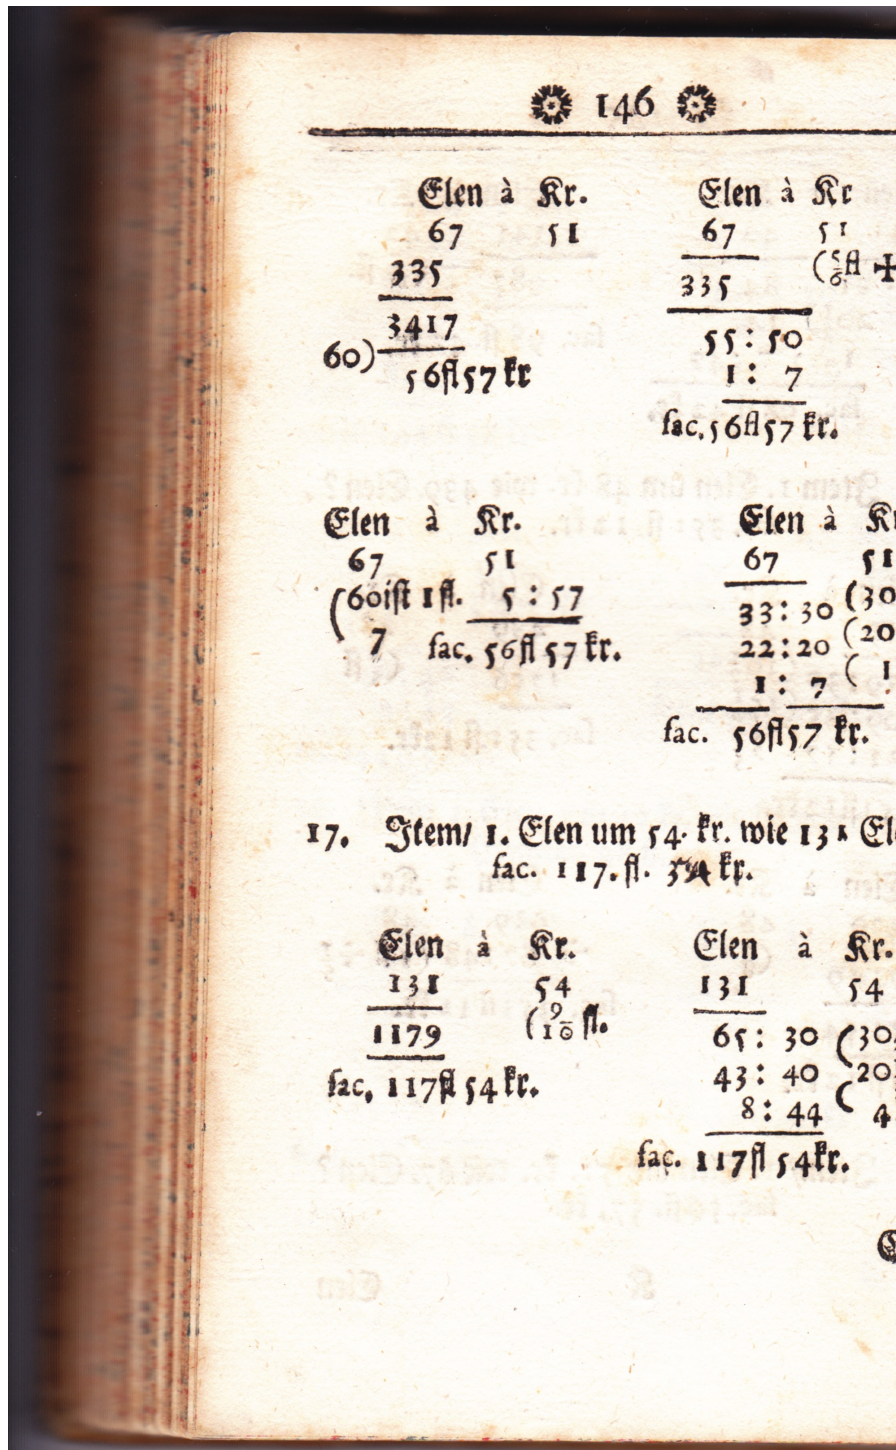 146
Elen à Kr.
67 51
335
3417
60)
56fl57kr
Elen à Kr
67 51
(5/6fl +
335
55:50
1: 7
fac.56fl57kr.
Elen à Kr.
67 51
(60ist 1fl. 5:57
7 fac. 56fl57kr.
Elen à Kr
67 51
33:30 (30
22:20 (20
1: 7 ( 1
fac. 56fl57 kr.
17. Item/ 1. Elen um 54. kr. wie 131 El
fac. 117. fl. kr.
Elen à Kr.
131 54
1179 (9/10 fl.
fac. 117fl54kr.
Elen à Kr.
131 54
65: 30 (30
43: 40 20
8: 44 ( 4
fac. 117fl54kr.